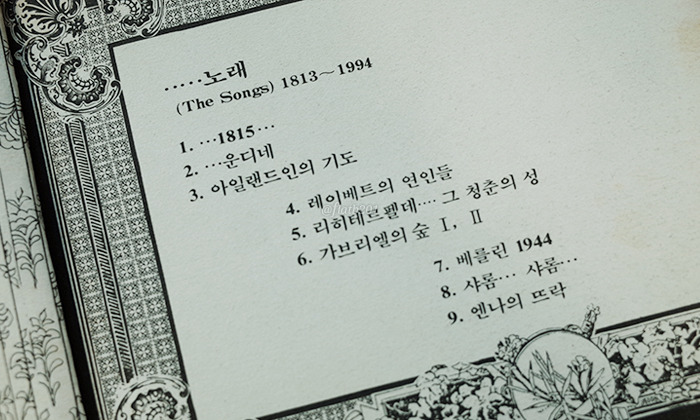 ·····노래
(The Songs) 1813~1994
1. …1815…
2. …운디네
3. 아일랜드인의 기도
4. 레이베트의 연인들
5. 리히테르펠데···· 그 청춘의 성
6. 가브리엘의 숲 Ⅰ, Ⅱ
7. 베를린 1944
8. 샤롬… 샤롬…
9. 엔나의 뜨락